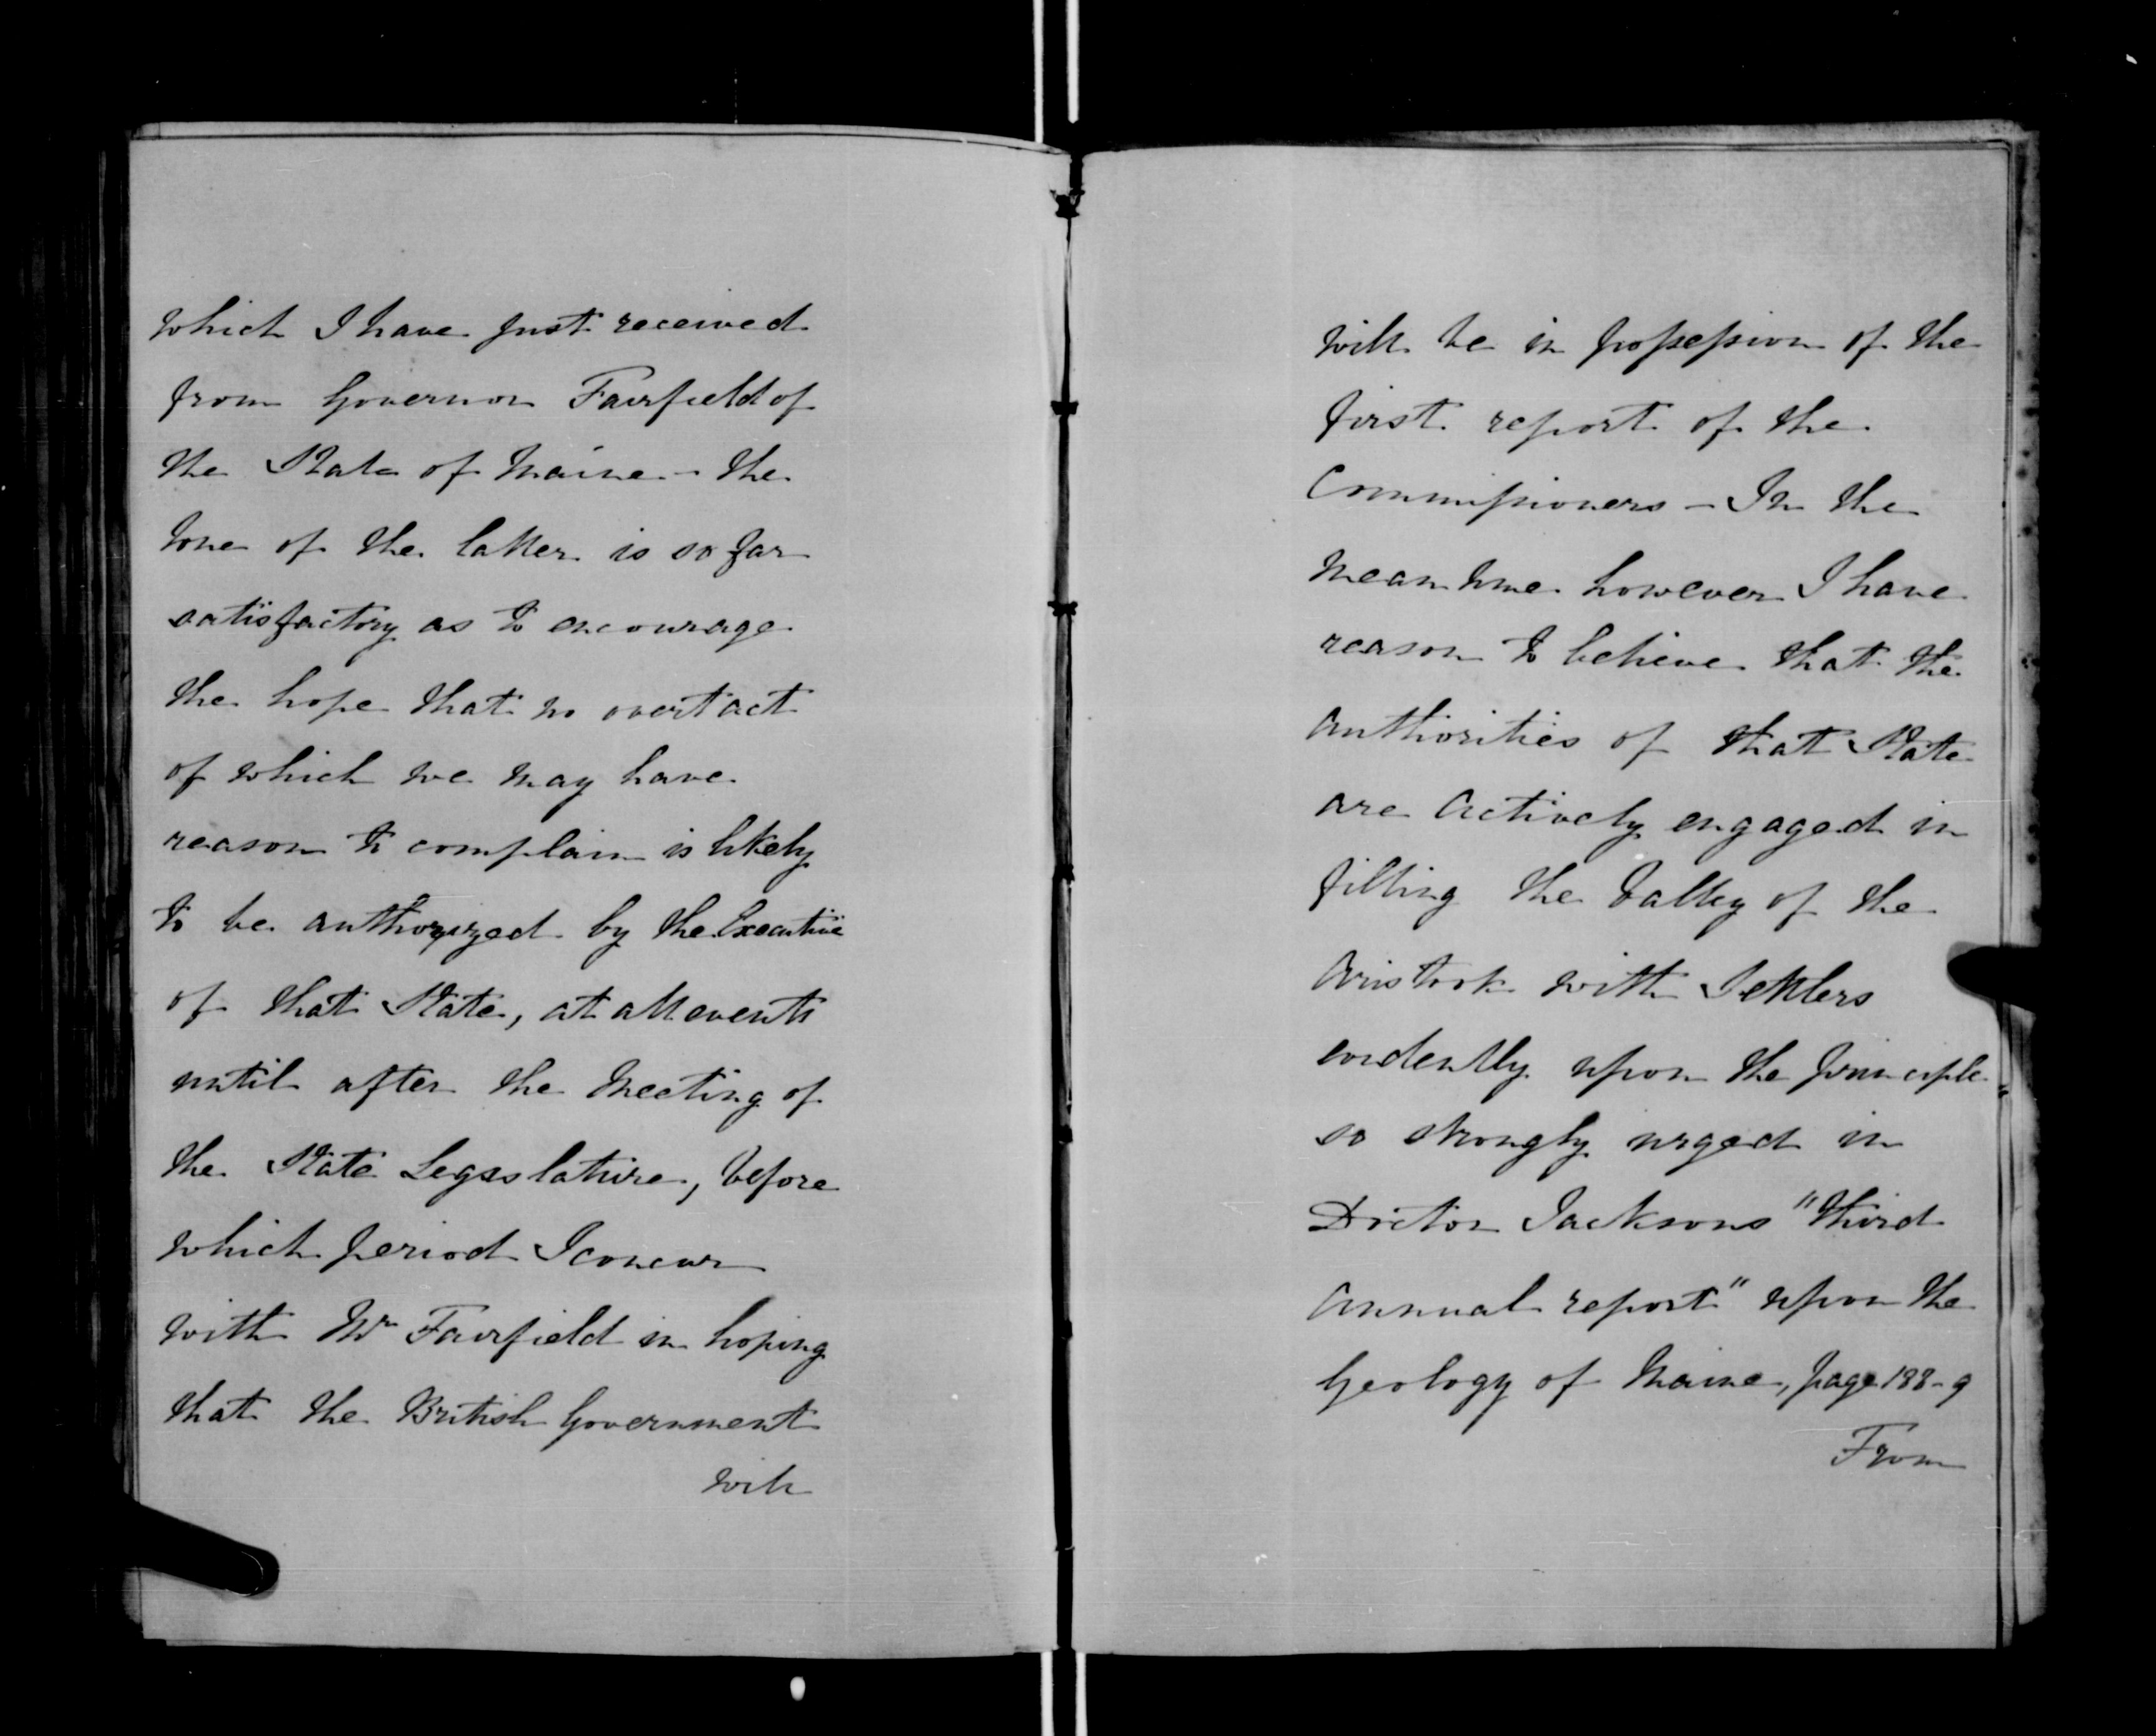 which I have just received
from Governor Fairfield of
the State of Maine – the
tone of the latter is so far
satisfactory as to encourage
the hope that no overt act
of which we may have
reason to complain is likely
to be authorized by the Executive
of that State, at all events
until after the Meeting of
the State Legislature, before
which period I concur
with Mr Fairfield in hoping
that the British Government
will
will be in possession of the
first report of the
Commissioners – In the
meantime however I have
reason to believe that the
Authorities of that State
are actively engaged in
filling the Valley of the
Aristook with Settlers
evidently upon the principle
so strongly urged in
Doctor Jacksons "third
Annual report" upon the
Geology of Maine, page 188-9
From